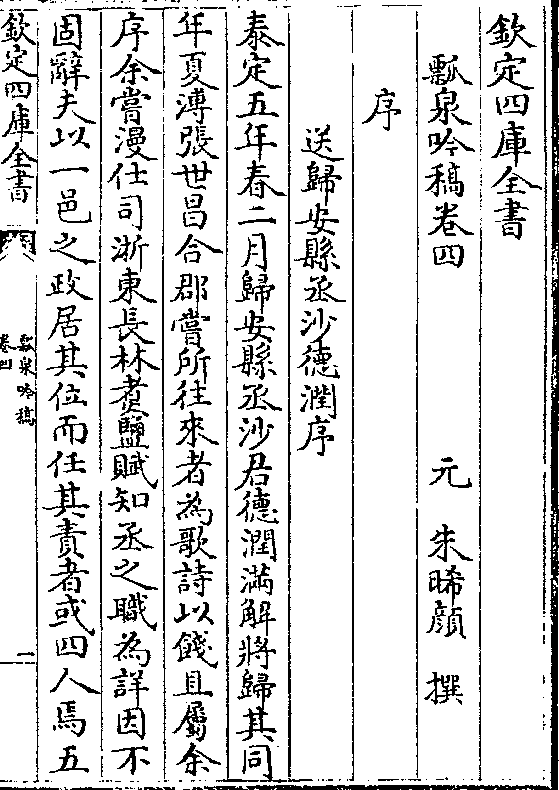 欽定四庫全書
瓢泉吟稿卷四
元 朱晞顔 撰
序
送歸安縣丞沙德潤序
泰定五年春二月歸安縣丞沙君德潤滿解將歸其同
年夏溥張世昌合郡嘗所往來者為歌詩以餞且屬余
序余嘗漫仕司浙東長林煑鹽賦知丞之職為詳因不
固辭夫以一邑之政居其位而任其責者或四人焉五
欽定四庫全書
瓢泉吟稿
卷四
一